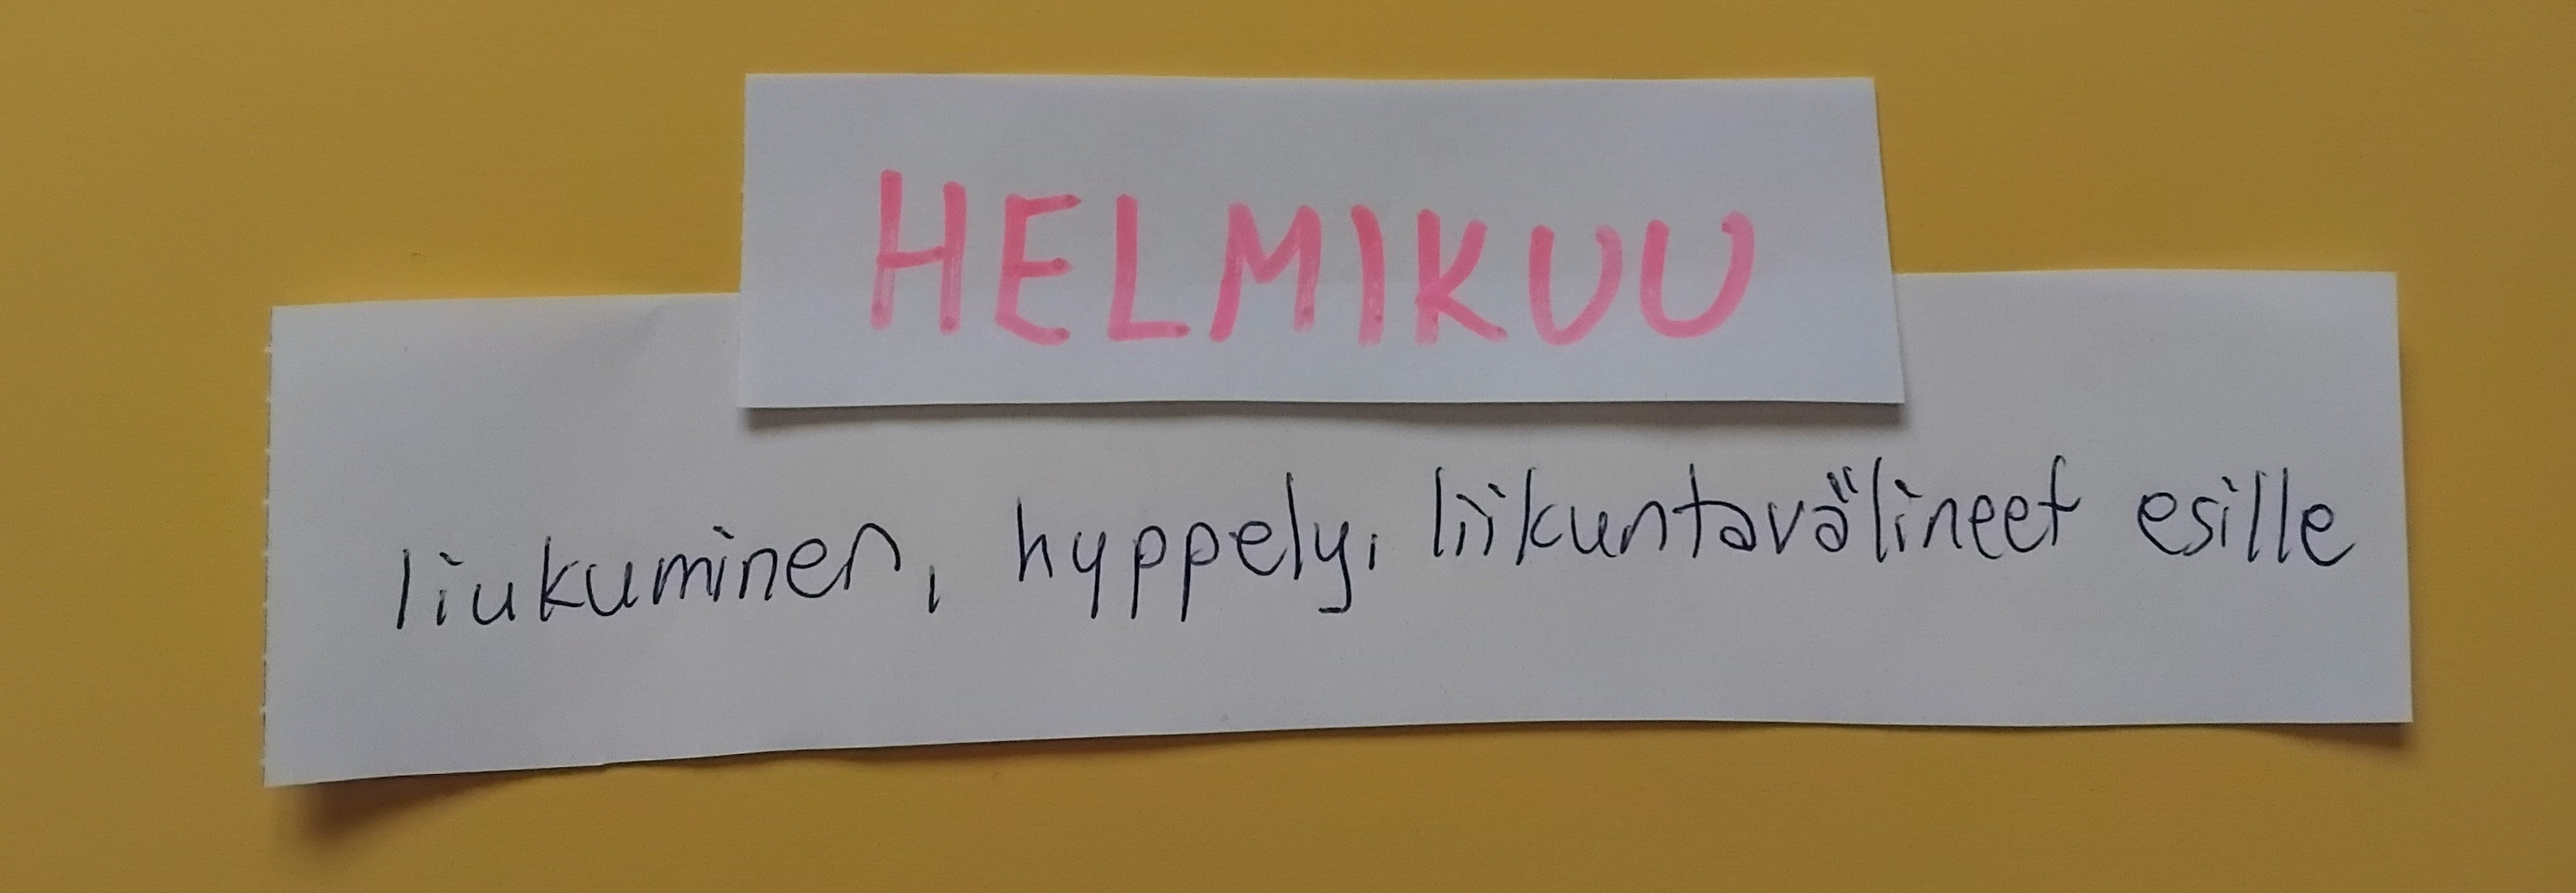 HELMIKUU
liukuminen, hyppely, liikuntavälineet esille